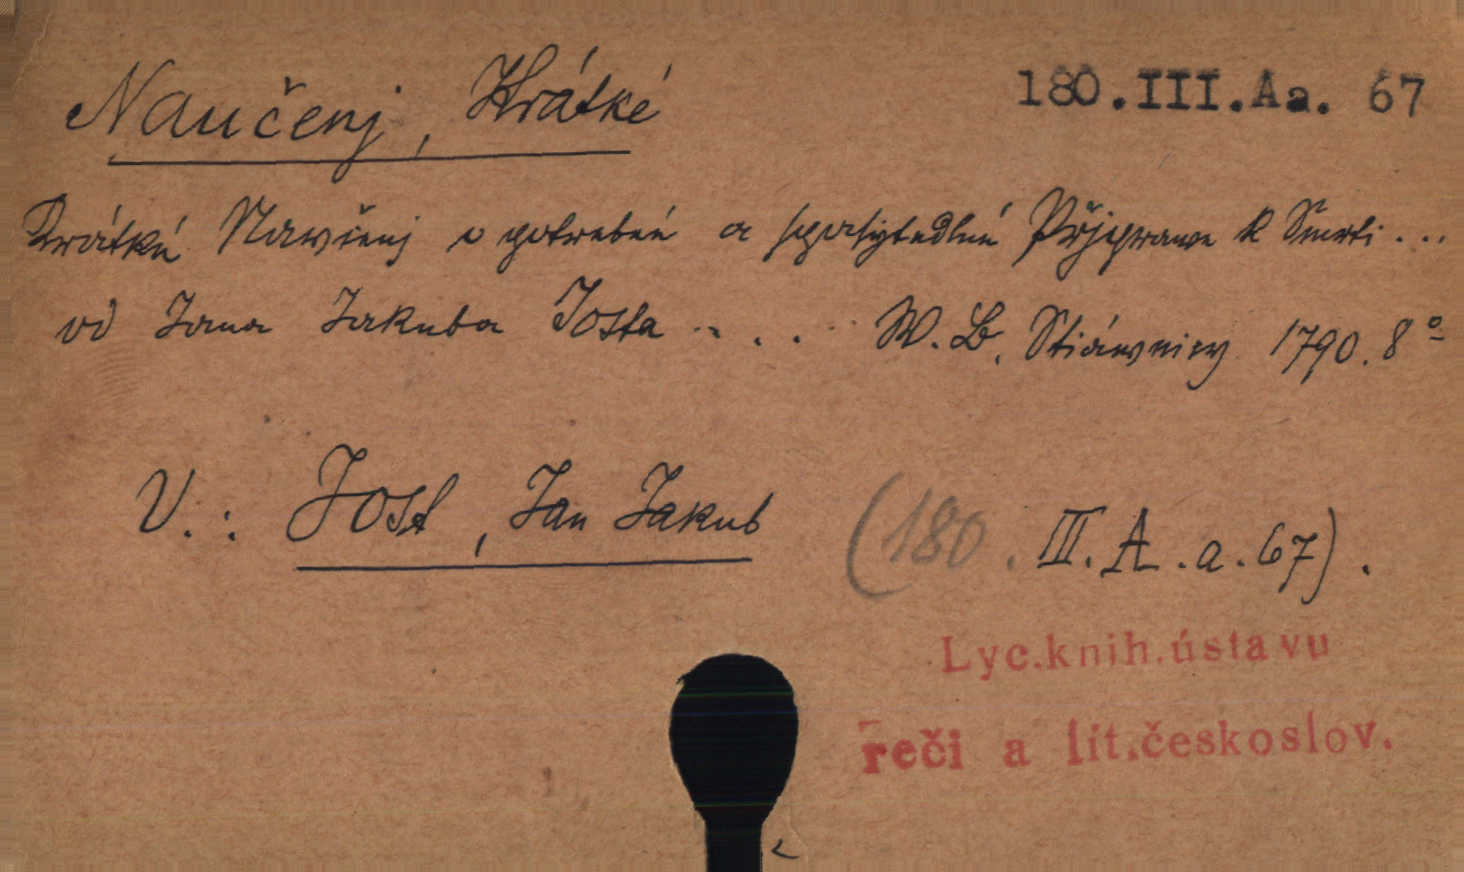 Naučenj, Krátké
180.III.Aa. 67
Krátké Nawčenj o potrebné a spasytedlné Přjprawe k Smrti...
od Jana Jakuba Josta .... W. B. Stiáwnicy 1790. 8º
V.: Jost, Jan Jakub
(180. III. A. a. 67).
Lyc.knih.ústavu
reči a lit.českoslov.